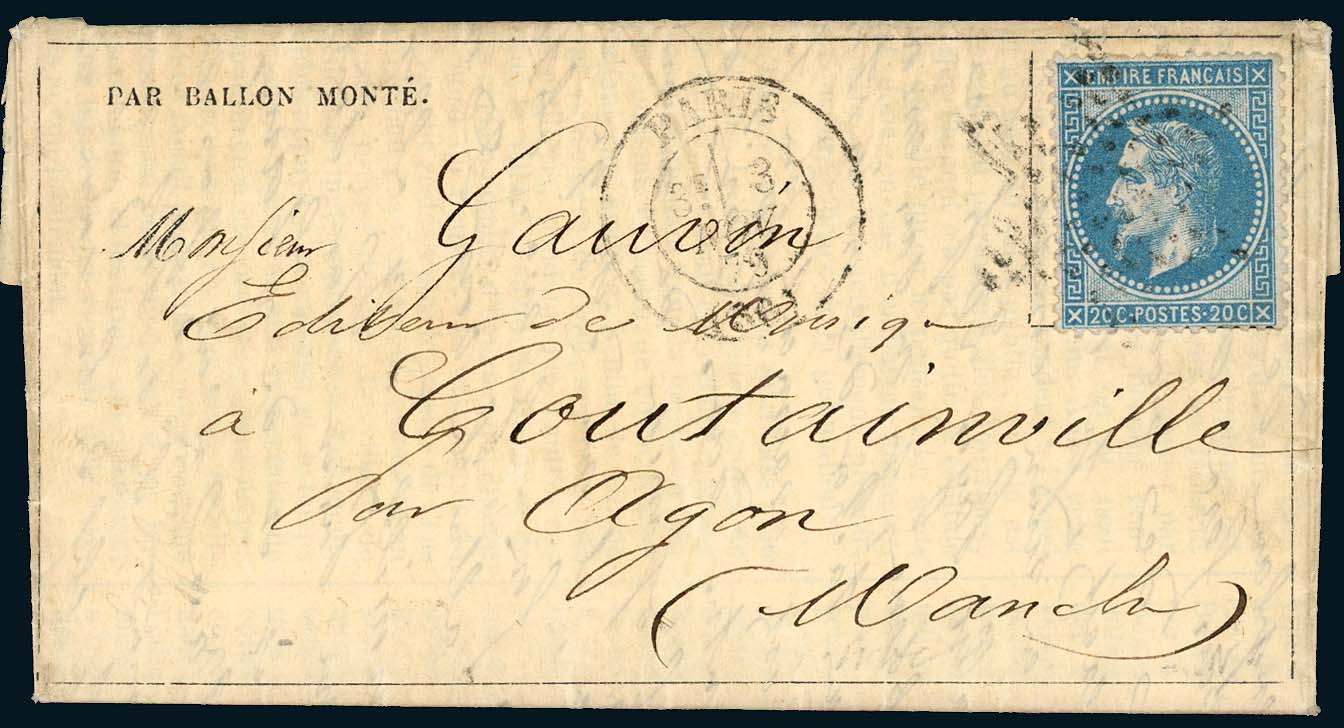 PAR BALLON MONTÉ.
EMPIRE FRANÇAIS
20C·POSTES·20C
PARIS
3E 3
NOV
70
(60)
Monsieur Gauvin
Editeur de Musique
à Coutainville
par Agon
(Manche)